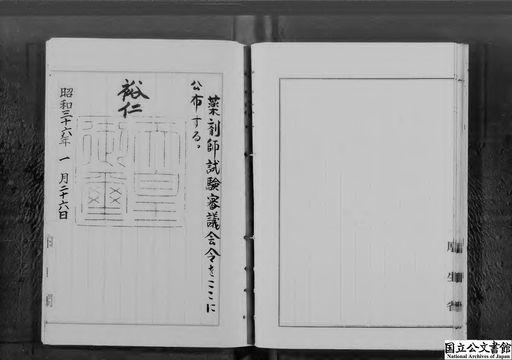 薬剤師試験審議会令をここに
公布する。
裕仁
天皇
御璽
昭和三十六年一月二十六日
厚生省
国立公文書館
National Archives of Japan